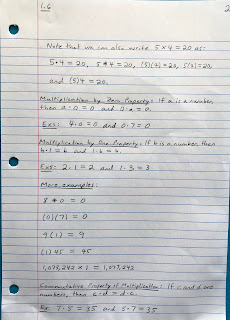 1.6
2
Note that we can also write 5 × 4 = 20 as:
5•4 = 20, 5 * 4 = 20, (5)(4) = 20, 5(4) = 20,
and (5)4 = 20.
Multiplication by Zero Property: If a is a number,
then a·0 = 0 and 0·a = 0.
Exs: 4·0 = 0 and 0·7 = 0
Multiplication by One Property: If b is a number, then
b·1 = b and 1·b = b.
Exs: 2·1 = 2 and 1·3 = 3
More examples:
8 * 0 = 0
(0)(7) = 0
9(1) = 9
(1)45 = 45
1,077,242 × 1 = 1,077,242
Commutative Property of Multiplication: If c and d are
numbers, then c·d = d·c.
Ex: 7·5 = 35 and 5·7 = 35